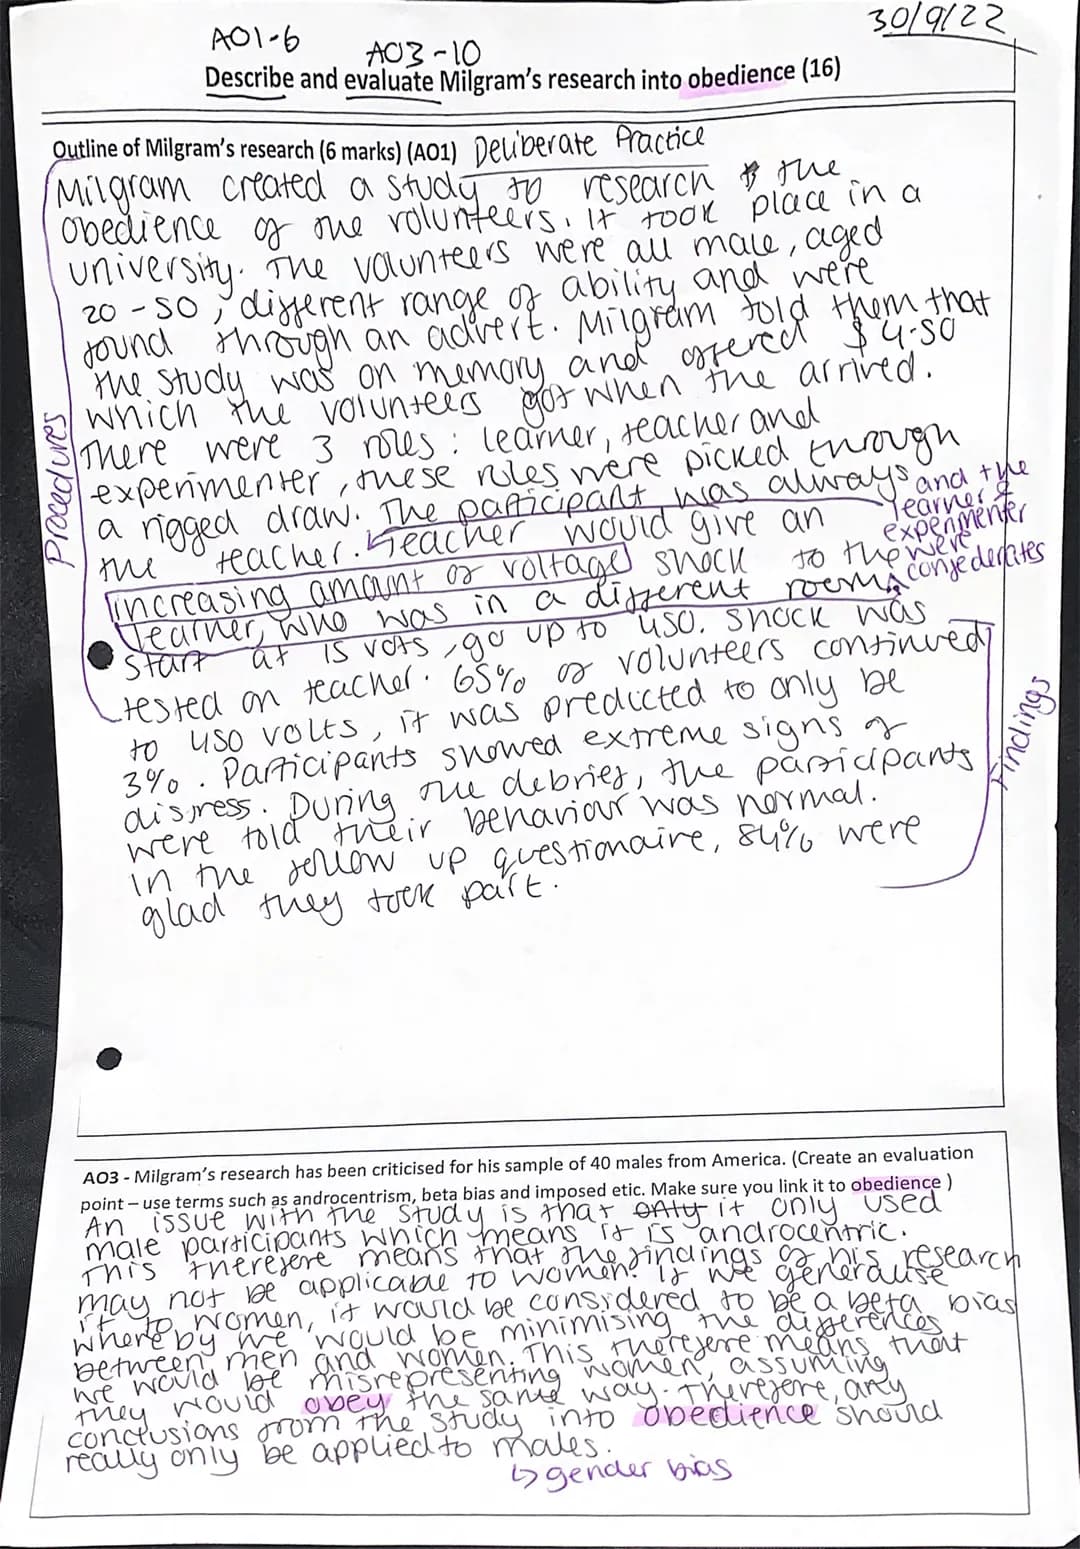 30/9/22
AO1-6
AO3-10
Describe and evaluate Milgram's research into obedience (16)
Outline of Milgram's research (6 marks) (AO1) Deliberate Practice
Milgram created a study to research the
obedience of the volunteers. It took place in a
university. The volunteers were all male, aged
20-50, different range of ability and were
found through an advert. Milgram told them that
the study was on memory and offered $4.50
which the volunteers got when the arrived.
There were 3 roles: learner, teacher and
experimenter, these rules were picked through
a rigged draw. The participant was always
the teacher. Teacher would give an
and the
learner &
experimenter
were
confederates
increasing amount of voltage shock to the
learner, who was in a different room.
Start at 15 vots, go up to 450. Shock was
tested on teacher. 65% of volunteers continued
to 450 volts, it was predicted to only be
3%. Participants showed extreme signs of
distress. During the debrief, the participants
were told their behaviour was normal.
In the follow up questionaire, 84% were
glad they took part.
Procedures
Findings
AO3 - Milgram's research has been criticised for his sample of 40 males from America. (Create an evaluation
point – use terms such as androcentrism, beta bias and imposed etic. Make sure you link it to obedience )
An issue with the study is that only it only used
male participants which means it is androcentric.
This therefere means that the findings of his research
may not be applicable to women. If we generalise
it to women, it would be considered to be a beta bias
where by we would be minimising the differences
between men and women. This therefere means that
we would be misrepresenting women, assuming
they would obey the same way. Therefore, any
conclusions from the study into obedience should
really only be applied to males.
↳ gender bias